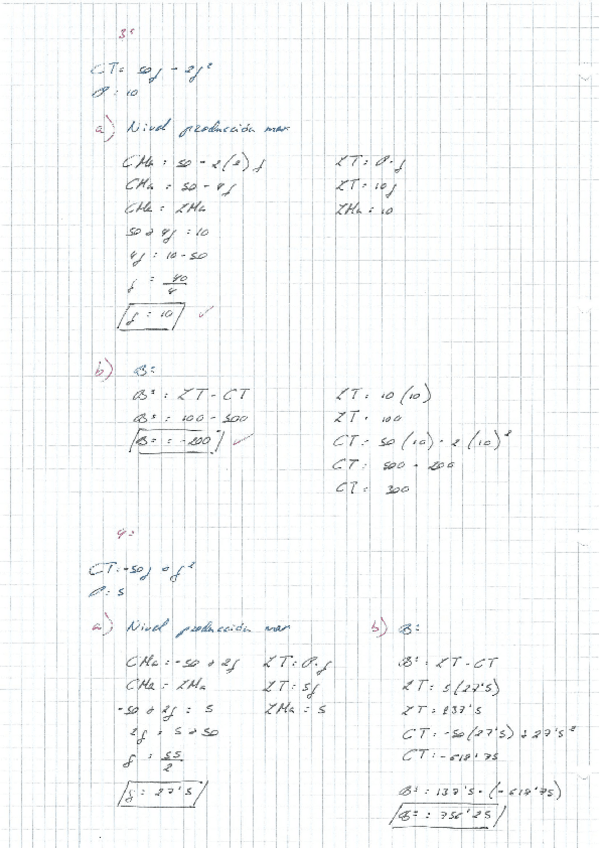 3º
CT = 50q - 2q²
P = 10
a) Nivel producción max
CMa = 50 - 2(2)q
CMa = 50 - 4q
CMa = IMa
50 - 4q = 10
4q = 10 - 50
q = 40/4
q = 10 ✓
IT = P·q
IT = 10q
IMa = 10
b) Bº
Bº = IT - CT
Bº = 100 - 300
Bº = -200 ✓
IT = 10(10)
IT = 100
CT = 50(10) - 2(10)²
CT = 500 - 200
CT = 300
4º
CT = -50q + q²
P = 5
a) Nivel producción max
CMa = -50 + 2q
CMa = IMa
-50 + 2q = 5
2q = 5 + 50
q = 55/2
q = 27'5
IT = P·q
IT = 5q
IMa = 5
b) Bº
Bº = IT - CT
IT = 5(27'5)
IT = 137'5
CT = -50(27'5) + 27'5²
CT = -618'75
Bº = 137'5 - (-618'75)
Bº = 756'25